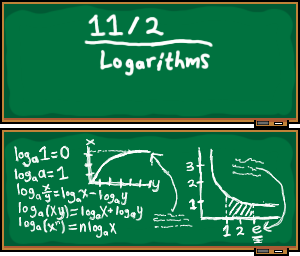 11/2
Logarithms
logₐ1=0
logₐa=1
logₐx/y=logₐx-logₐy
logₐ(xy)=logₐx+logₐy
logₐ(xⁿ)=nlogₐx
x
y
3
2
1
1 2 e